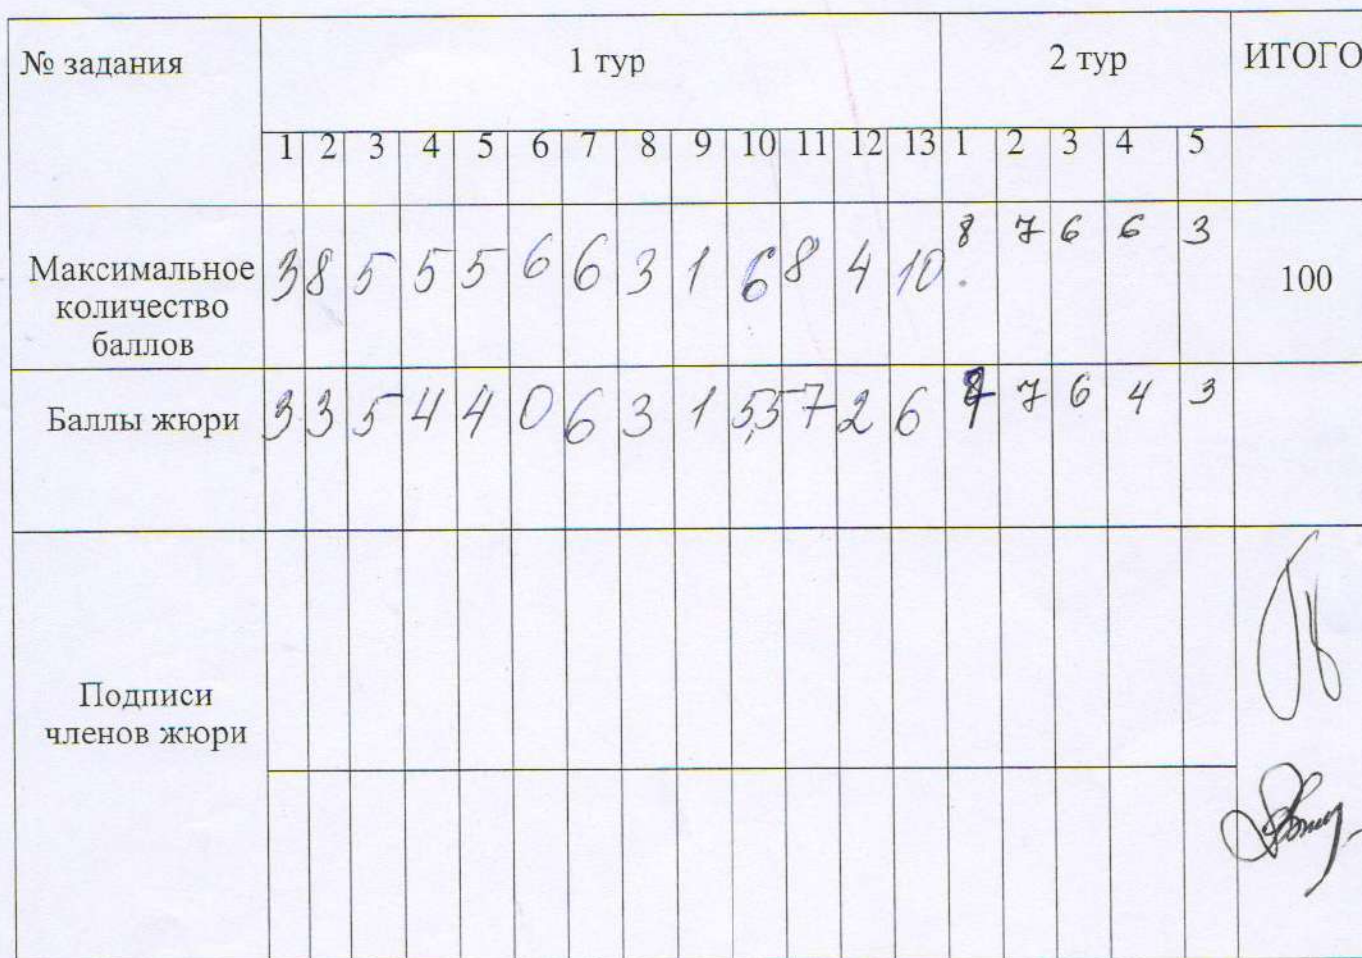 № задания 1 тур 2 тур ИТОГО
1 2 3 4 5 6 7 8 9 10 11 12 13 1 2 3 4 5
Максимальное количество баллов 3 8 5 5 5 6 6 3 1 6 8 4 10 8 7 6 6 3 100
Баллы жюри 3 3 5 4 4 0 6 3 1 5,5 7 2 6 7 6 4 3
Подписи
членов жюри